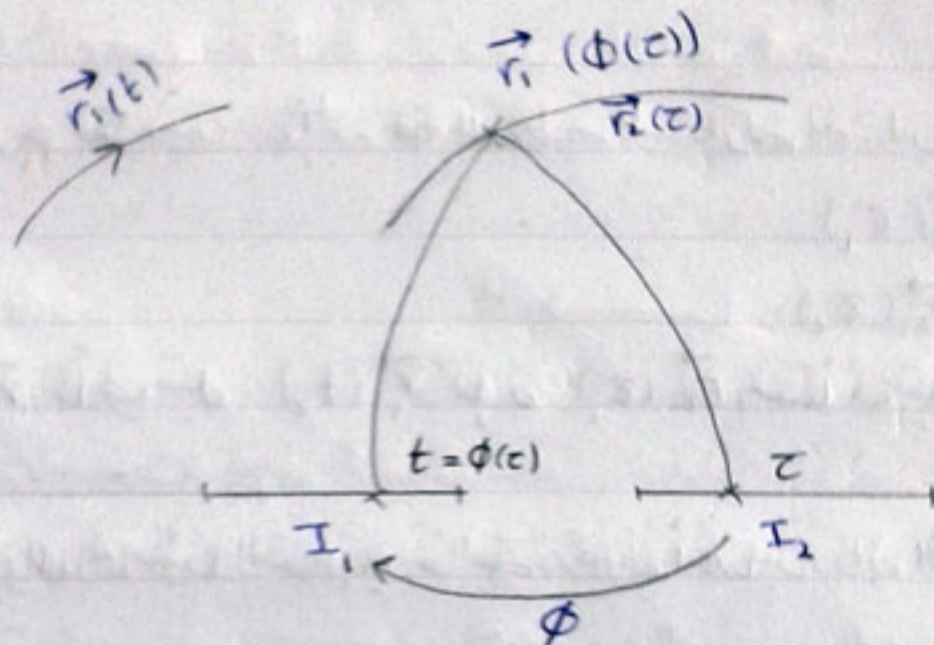 r⃗₁(t)
r⃗₁ (ϕ(τ))
r⃗₂(τ)
t = ϕ(τ)
τ
I₁
I₂
ϕ